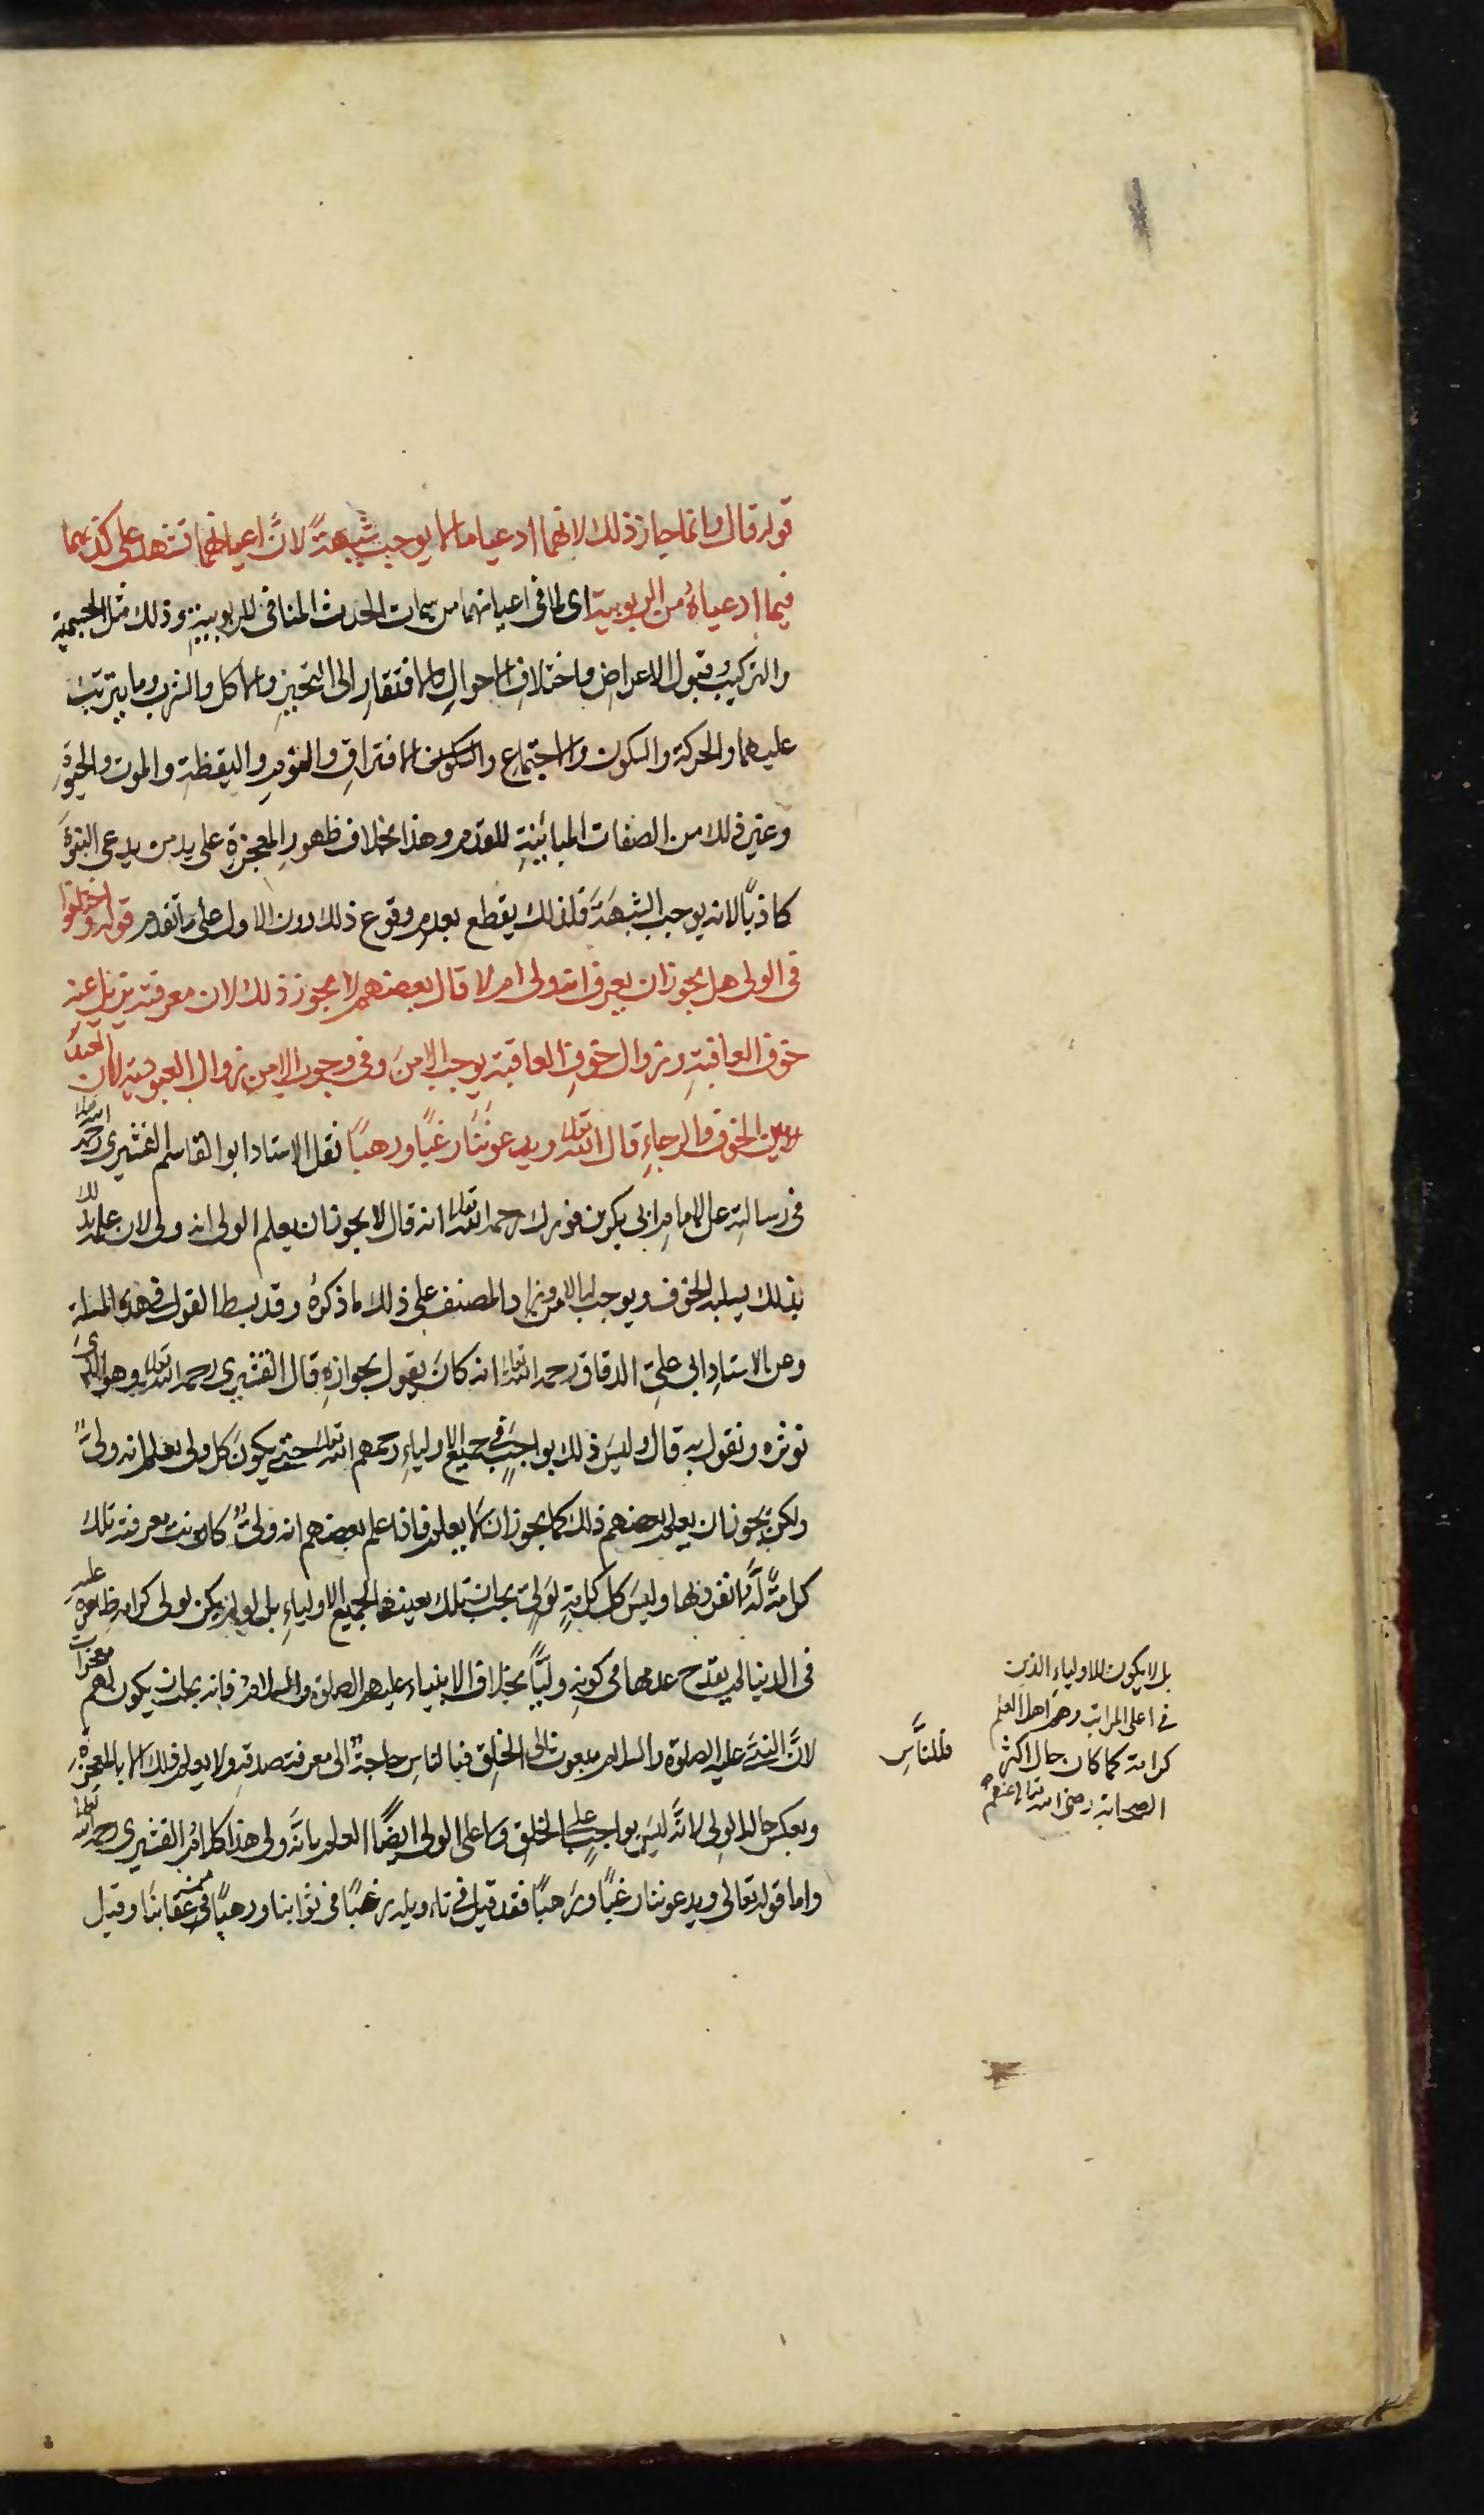 قوله قال وانما جاز ذلك لانهما ادعيا ما لا يوجب شبهةً لانَّ اعيانهما تشهد على كذبهما
فيما ادعياهُ من الربوبية اى لما فى اعيانهما من سمات الحدث المنافى للربوبيةِ وذلك مثل الجسمية
والتركيب وقبول الاعراض واختلاف الاحوالِ والافتقارِ الى التحيزِ والاكل والشرب وما يترتب
عليهما والحركة والسكون والاجتماع والافتراقِ والنومِ واليقظةِ والموت والحيوةِ
وغير ذلك من الصفات المباينةِ للقدم وهذا بخلاف ظهورِ المعجزةِ على يد من يدعى النبوةَ
كاذبًا لانه يوجب الشبهةَ فلذلك يقطع بعدم وقوع ذلك دون الاول على ما تقدم قوله واختلفوا
فى الولى هل يجوز ان يعرف انه ولى ام لا قال بعضهم لا يجوز ذلك لان معرفته تزيل عنه
خوف العاقبةِ وزوال خوفِ العاقبة يوجب الامنَ وفى وجوب الامن زوال العبودية لان العبدَ
بين الخوف والرجاءِ قال الله تعالى ويدعونَنَا رغبًا ورهبًا نقل الاستاد ابو القاسم القشيرى رحمه الله تعالى
فى رسالتِه عن الامامِ ابى بكر بن فورك رحمه الله تعالى انه قال لا يجوز ان يعلم الولى انه ولى لان علمه
بذلك يسلبه الخوف ويوجب له الامن وزاد المصنف على ذلك ما ذكرهُ وقد بسط القول فى هذه المسئلة
وعن الاستادِ ابى علىّ الدقاق رحمه الله تعالى انه كانَ يقول بجوازهِ قال القشيرى رحمه الله تعالى وهو الذى
نوثره ونقول به قال وليسَ ذلك بواجبٍ فى جميع الاولياءِ رحمهم الله تعالى حتى يكونَ كل ولى يعلم انه ولىٌّ
ولكنْ يجوز ان يعلم بعضهم ذلك كما يجوز ان لا يعلم فاذا علم بعضهم انه ولىٌّ كانت معرفته تلك
كرامةً له انفرد بها وليسَ كل كرامةٍ لولىٍّ يجب ان تلك بعينها لجميع الاولياءِ بل لو لم يكن لولى كرامة ظاهرة عليه
فى الدنيا لم يقدح عدمها فى كونهِ وليًّا بخلاف الانبياءِ عليهم الصلوة والسلام فانه يجب ان يكون لهم معجزات
لانَّ النبىَّ عليه الصلوة والسلام مبعوث الى الخلقِ فبالناسِ حاجةٌ الى معرفة صدقهِ ولا يعلم ذلك الا بالمعجزةِ
وبعكس حالِ الولى لانَّه ليسَ بواجبٍ على الخلقِ ولا على الولى ايضًا العلم بانَّه ولى هذا كلامُ القشيرى رحمه الله تعالى
واما قوله تعالى ويدعوننا رغبًا ورهبًا فقد قيل فى تاءويله رغبًا فى ثوابنا ورهبًا من عقابنَا وقيل
بل لا يكون للاولياء الذين
فى اعلى المراتب وهم اهل العلم
كرامة كما كان حال اكثر
الصحابة رضى الله تعالى عنهم
فللنَّاسِ